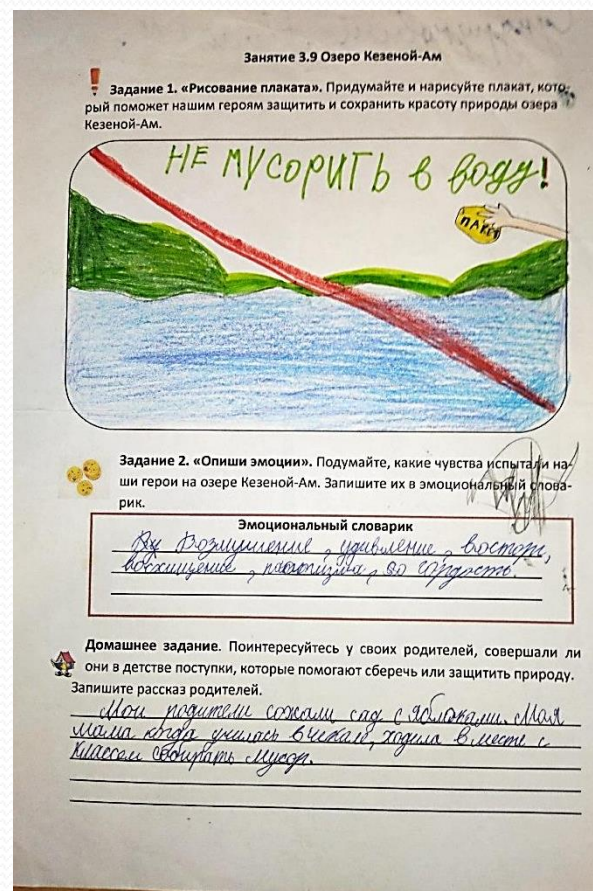 Занятие 3.9 Озеро Кезеной-Ам
Задание 1. «Рисование плаката». Придумайте и нарисуйте плакат, кото-
рый поможет нашим героям защитить и сохранить красоту природы озера
Кезеной-Ам.
НЕ МУСОРИТЬ в воду!
ПАКЕТ
Задание 2. «Опиши эмоции». Подумайте, какие чувства испытали на-
ши герои на озере Кезеной-Ам. Запишите их в эмоциональный слова-
рик.
Эмоциональный словарик
Возмущение, удивление, восторг,
восхищение, гордость.
Домашнее задание. Поинтересуйтесь у своих родителей, совершали ли
они в детстве поступки, которые помогают сберечь или защитить природу.
Запишите рассказ родителей.
Мои родители сожали сад с яблоками. Моя
мама когда училась в, ходила в месте с
классом собирать мусор.